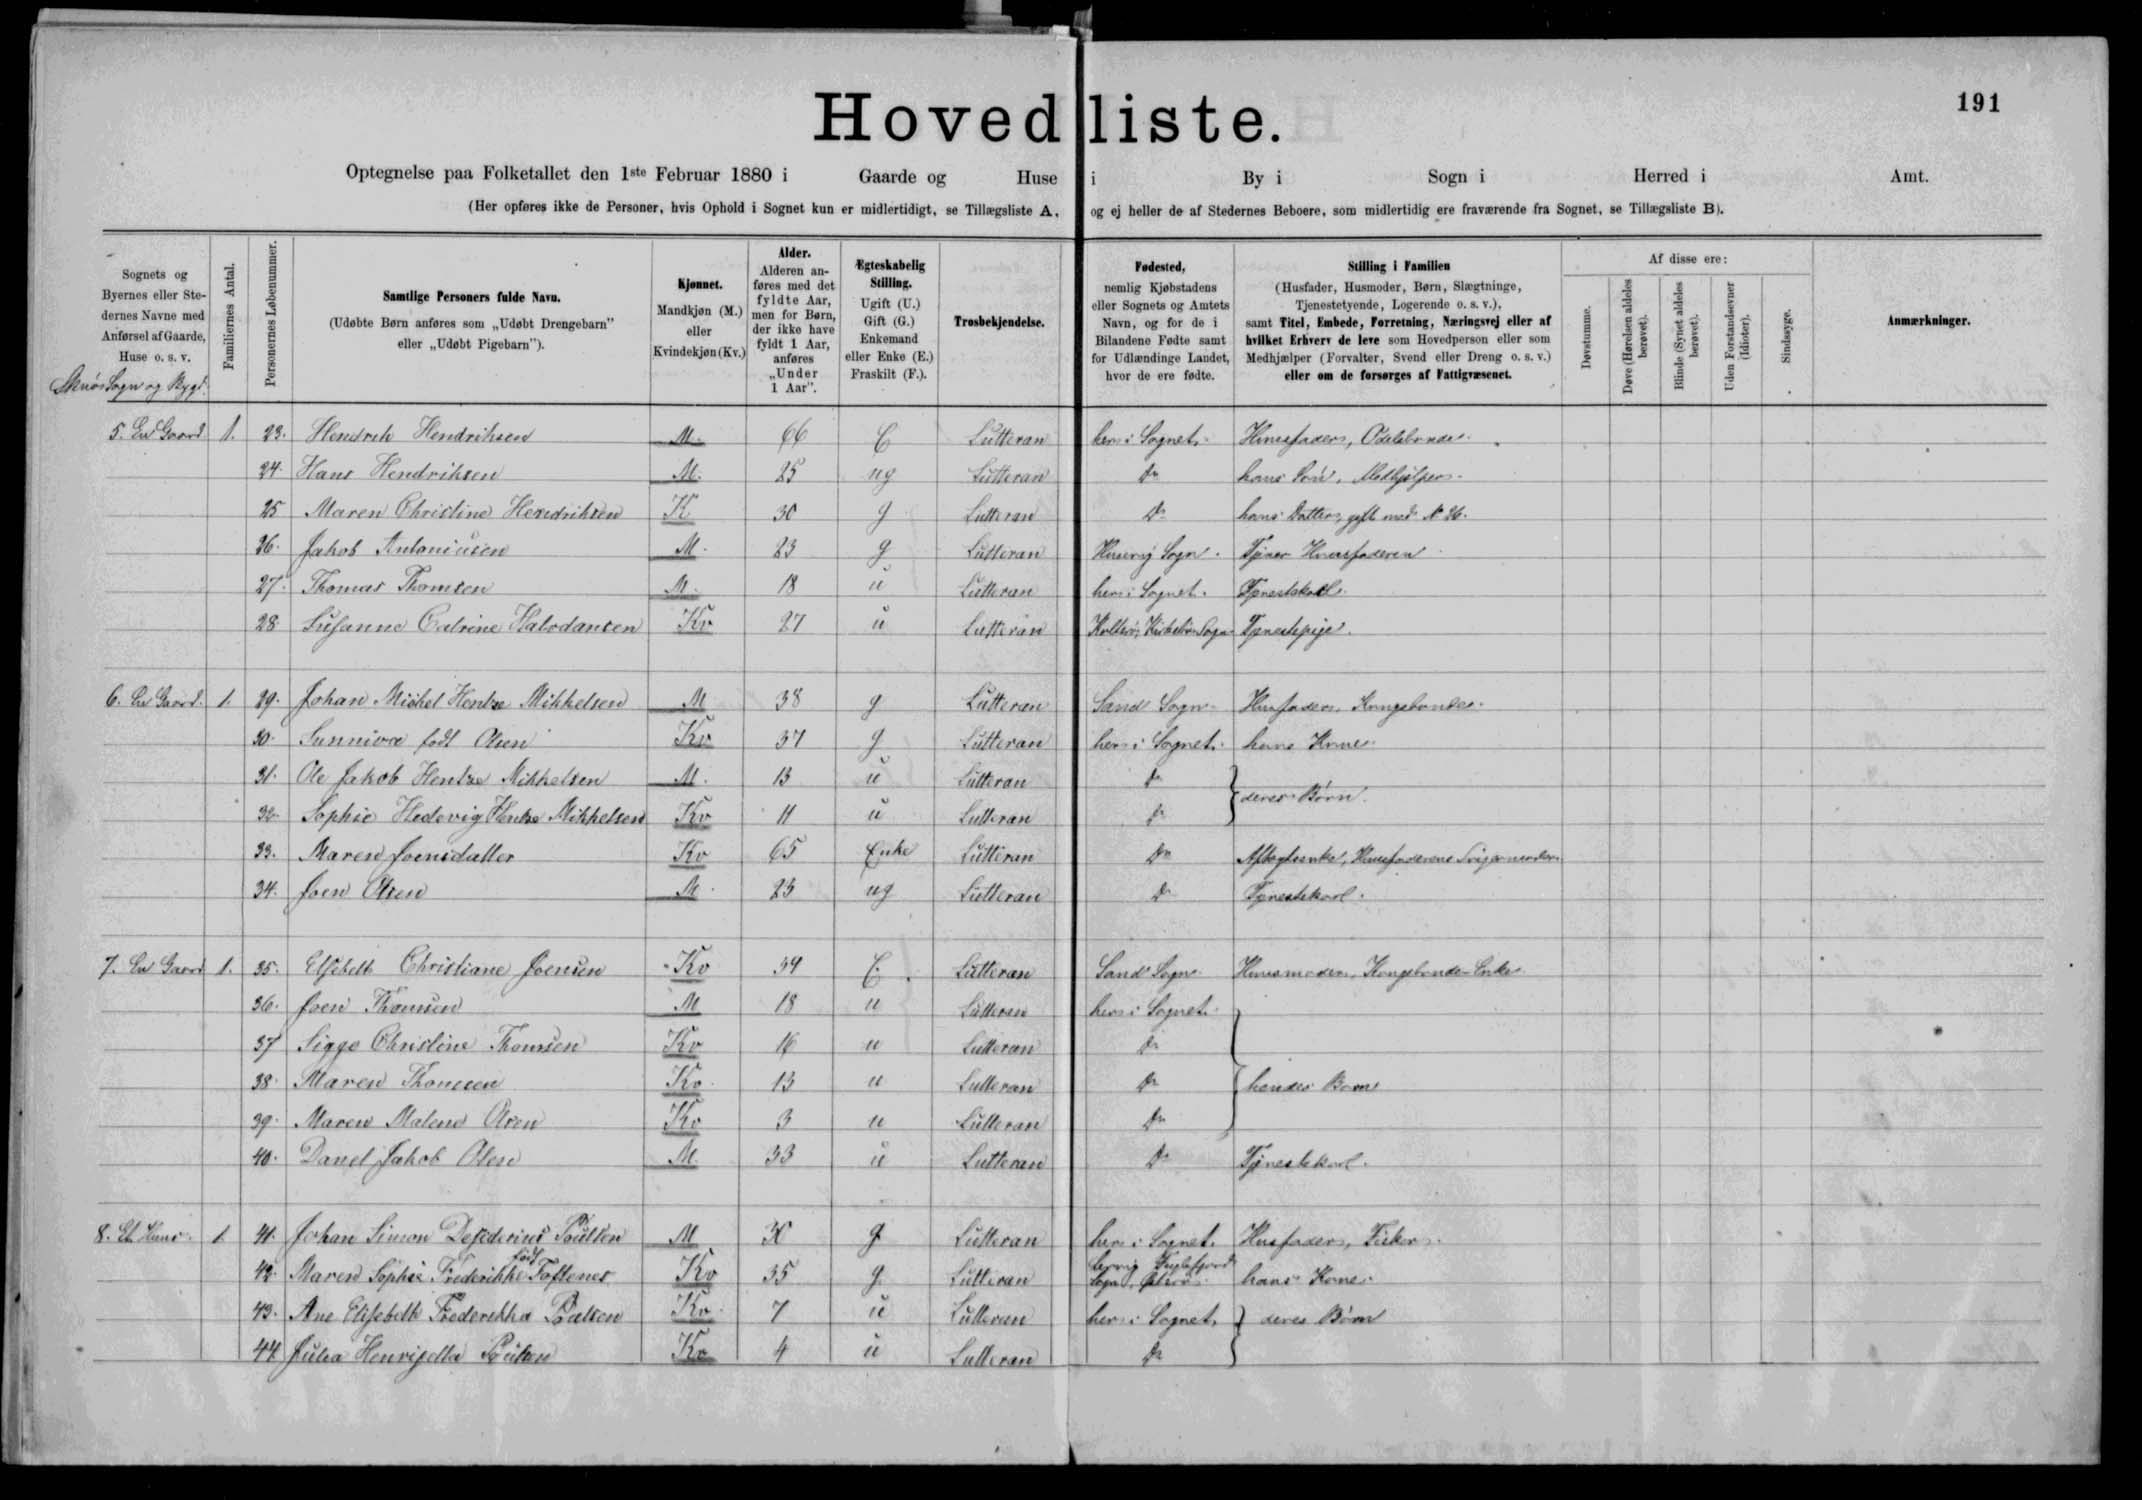 191
Hovedliste.
Optegnelse paa Folketallet den 1ste Februar 1880 i Gaarde og Huse i By i Sogn i Herred i Amt.
(Her opføres ikke de Personer, hvis Ophold i Sognet kun er midlertidigt, se Tillægsliste A, og ej heller de af Stedernes Beboere, som midlertidig ere fraværende fra Sognet, se Tillægsliste B).
Sognets og Byernes eller Stedernes Navne med Anførsel af Gaarde, Huse o. s. v.
Familiernes Antal.
Personernes Løbenummer.
Samtlige Personers fulde Navn.
(Udøbte Børn anføres som „Udøbt Drengebarn" eller „Udøbt Pigebarn").
Kjønnet.
Mandkjøn (M.) eller Kvindekjøn (Kv.)
Alder.
Alderen anføres med det fyldte Aar, men for Børn, der ikke have fyldt 1 Aar, anføres „Under 1 Aar".
Ægteskabelig Stilling.
Ugift (U.) Gift (G.) Enkemand eller Enke (E.) Fraskilt (F.).
Trosbekjendelse.
Fødested,
nemlig Kjøbstadens eller Sognets og Amtets Navn, og for de i Bilandene Fødte samt for Udlændinge Landet, hvor de ere fødte.
Stilling i Familien
(Husfader, Husmoder, Børn, Slægtninge, Tjenestetyende, Logerende o. s. v.),
samt Titel, Embede, Forretning, Næringsvej eller af hvilket Erhverv de leve som Hovedperson eller som Medhjælper (Forvalter, Svend eller Dreng o. s. v.) eller om de forsørges af Fattigvæsenet.
Af disse ere:
Døvstumme.
Døve (Hørelsen aldeles berøvet).
Blinde (Synet aldeles berøvet).
Uden Forstandsevner (Idioter).
Sindssyge.
Anmærkninger.
Skuø Sogn og Bygd.
5. En Gaard 1. 23. Hendrik Hendriksen M. 66 E Lutteran her i Sognet. Huusfader, Odelsbonde.
24. Hans Hendriksen M. 25 ug Lutteran Do hans Søn, Medhjælper.
25 Maren Christine Hendriksen K 30 g Lutteran Do hans Datter, gift med N 26.
26. Jakob Antoniusen M. 23 g Lutteran Husevig Sogn. Tjener Huusfaderen
27. Thomas Thomsen M. 18 u Lutteran her i Sognet. Tjenestekarl.
28. Susanne Catrine Halvdansen Kv 27 u Lutteran Sogn Tjenestepige.
6. En Gaard. 1. 29. Johan Michel Hentze Mikkelsen M 38 g Lutteran Sand Sogn Husfader, Kongsbonde.
30. Sunniva født Olsen Kv 37 g Lutteran her i Sognet. hans Kone.
31. Ole Jakob Hentze Mikkelsen M. 13 u Lutteran Do
deres Børn.
32. Sophie Hedevig Hentze Mikkelsen Kv 11 u Lutteran Do
33. Maren Joensdatter Kv 65 Enke Lutteran Do Aftægtsenke, Huusfaderens Svigermoder.
34. Joen Olsen M. 23 ug Lutteran Do Tjenestekarl.
7. En Gaard 1. 35. Elsebeth Christiane Joensen Kv 34 E. Lutteran Sand Sogn. Huusmoder, Kongsbonde-Enke.
36. Joen Thomsen M 18 u Lutteran her i Sognet.
37 Sigge Christine Thomsen Kv 16 u Lutteran Do
38. Maren Thomsen Kv. 13 u Lutteran Do hendes Børn
39. Maren Malene Olsen Kv 3 u Lutteran Do
40. Danel Jakob Olsen M. 33 u Lutteran Do Tjenestekarl.
8. Et Huus. 1. 41. Johan Simon Desiderius Poulsen M 30 g Lutteran her i Sognet. Husfader, Fisker.
42. Maren Sophie Frederikke født Toftenes Kv 35 g. Lutteran Lervig Fuglefjord Sogn, Østerø. hans Kone.
43. Ane Elisebeth Frederikka Poulsen Kv. 7 u Lutteran her i Sognet, deres Børn
44 Julia Henrijetta Poulsen Kv 4 u Lutteran Do